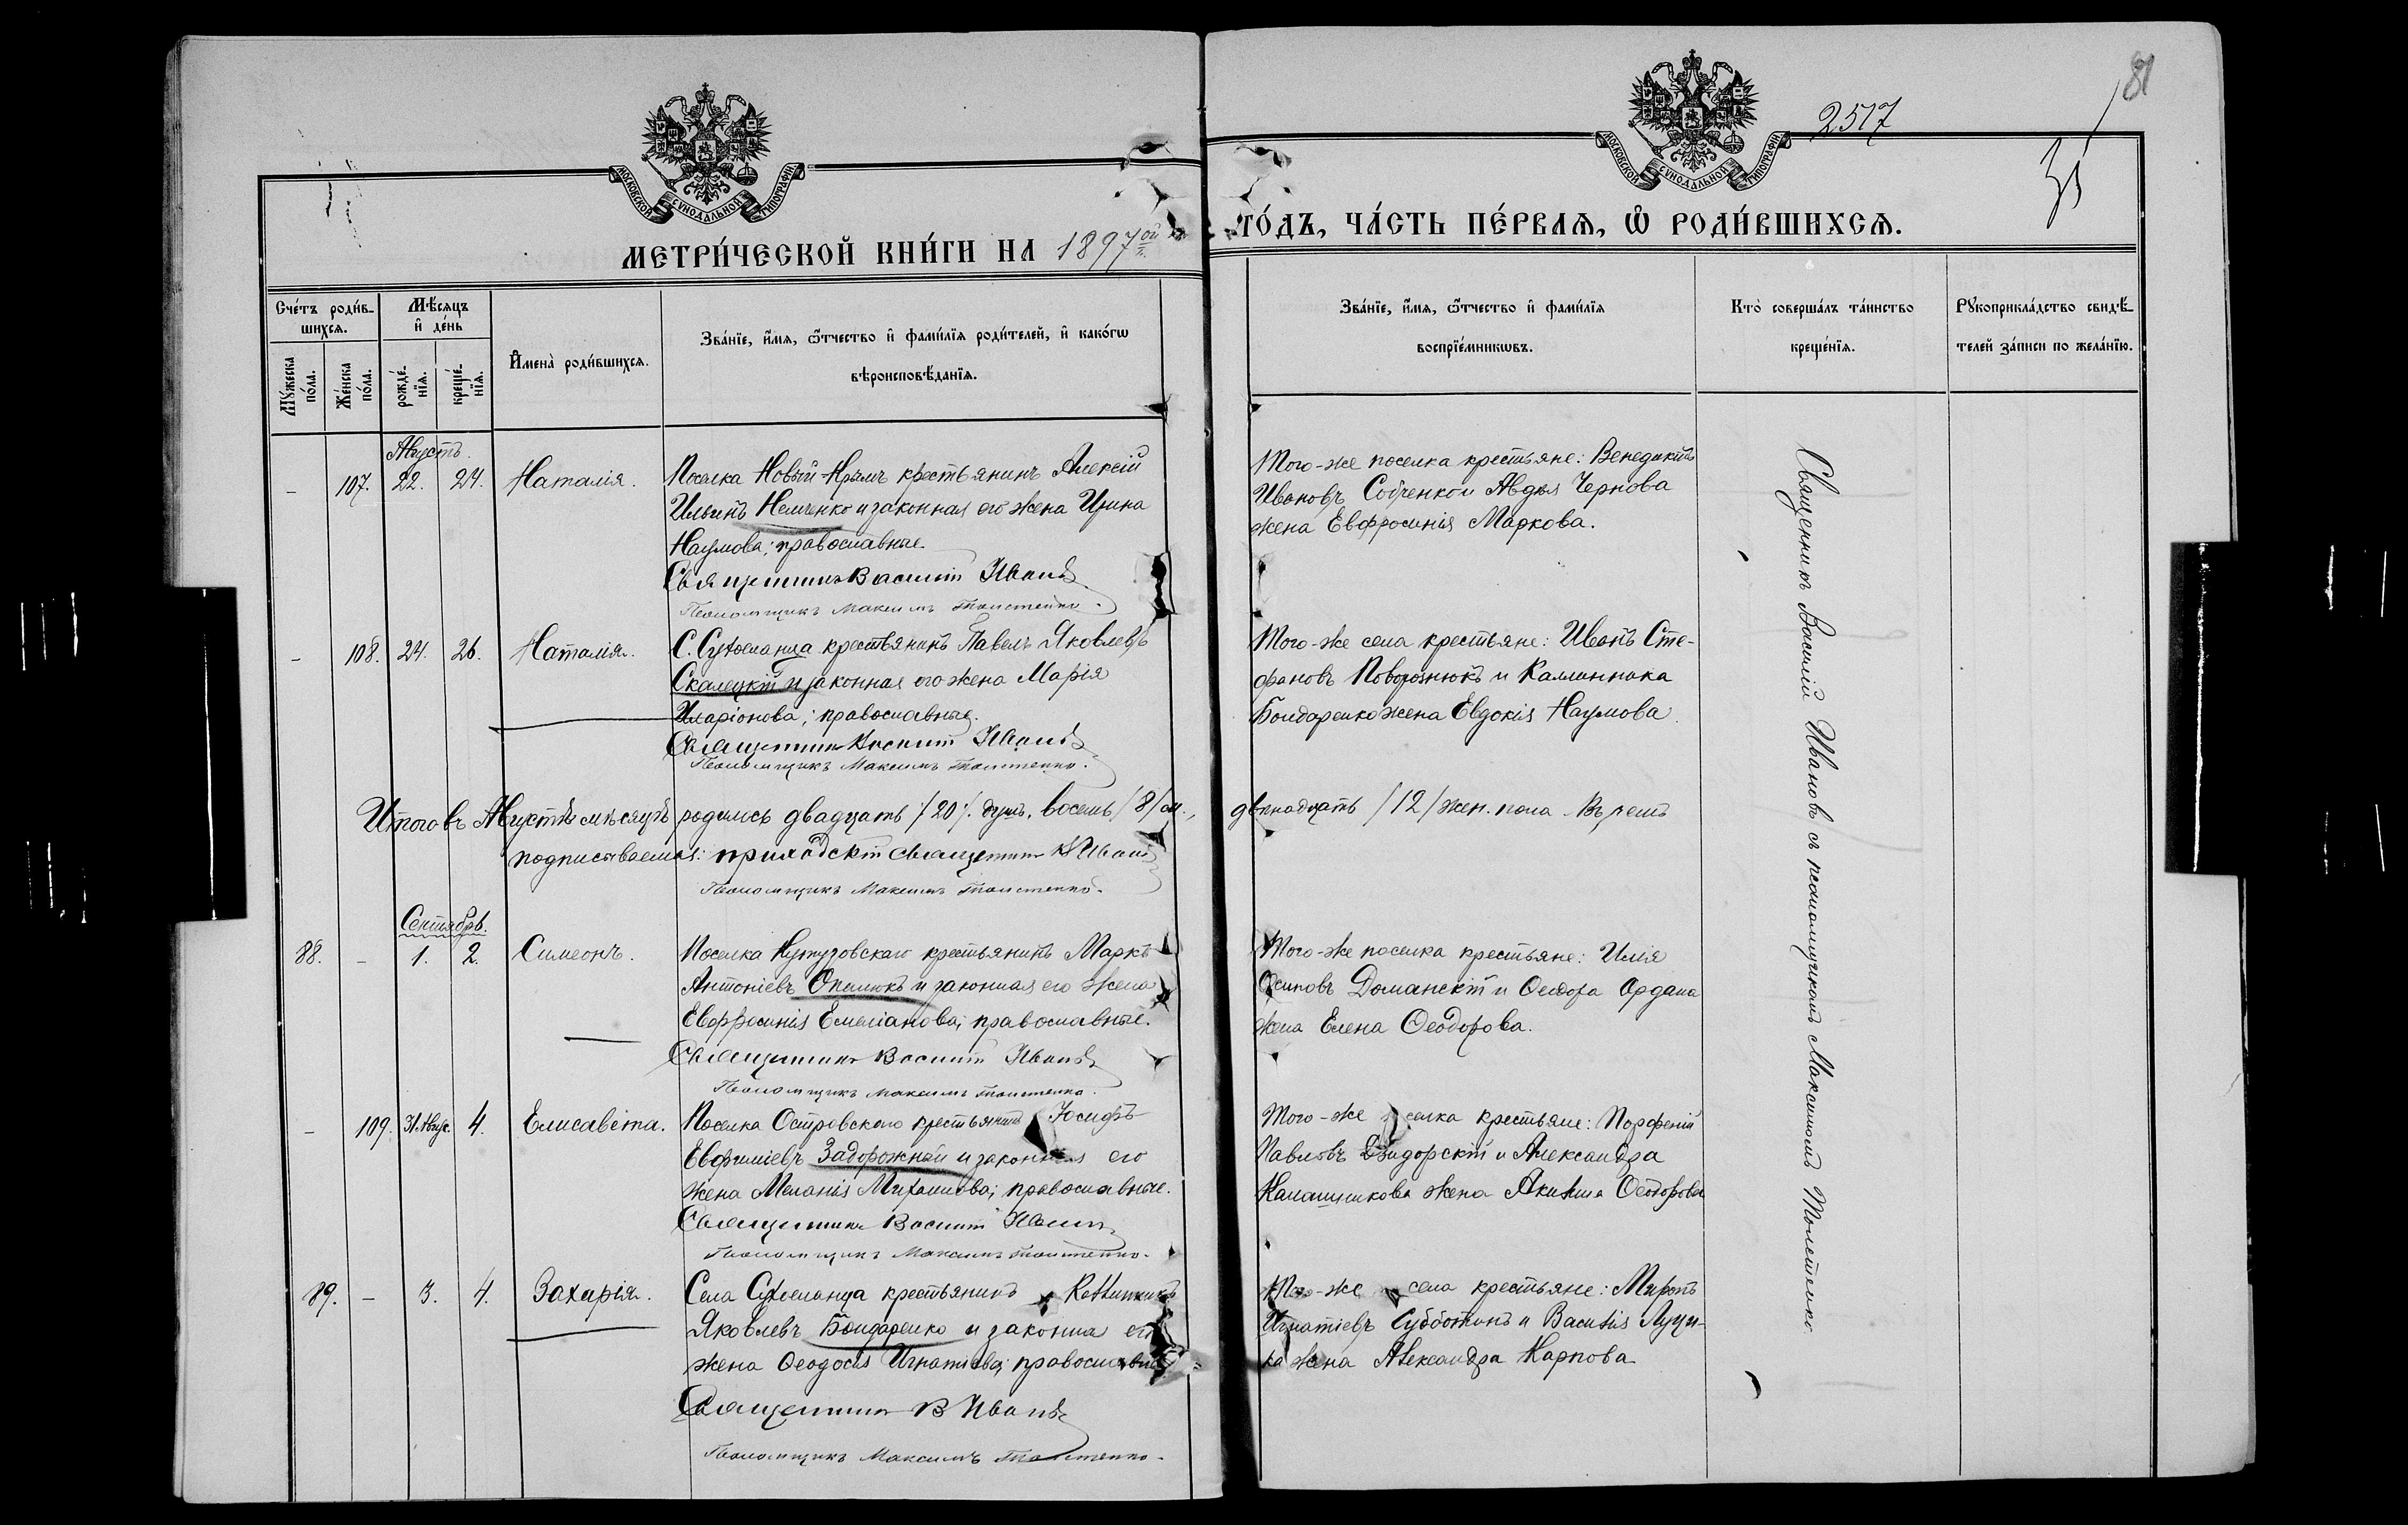 81
2517
31
МОСКОВСКОЙ СѴНОДАЛЬНОЙ ТИПОГРАФІИ
МОСКОВСКОЙ СѴНОДАЛЬНОЙ ТИПОГРАФІИ
МЕТРИ́ЧЕСКОЙ КНИ́ГИ НА 1897ой
ГО́ДЪ, ЧА́СТЬ ПЕ́РВАЯ, Ѽ РОДИ́ВШИХСЯ.
Сче́тъ роди́в-
шихся.
Мѣ́сяцъ
и҆ де́нь
Мꙋ́жеска по́ла.
Же́нска по́ла.
рожде́-
нїя.
креще́-
нїя.
И҆мена̀ роди́вшихся.
Зва́нїе, и҆́мя, ѻ҆́тчество и҆ фами́лїя роди́телей, и҆ како́гѡ
вѣроисповѣ́данїя.
Зва́нїе, и҆́мя, ѻ҆́тчество и҆ фами́лїя
воспрїе́мникѡвъ.
Кто̀ соверша́лъ та́инство
креще́нїя.
Рꙋкоприкла́дство свидѣ́-
телей за́писи по жела́нїю.
Августъ.
- 107. 22. 24. Наталія. Поселка Новый-Крымъ крестьянинъ Алексій
Ильинъ Немченко и законная его жена Ирина
Наумова; православные.
Священникъ Василій Ивановъ
Псаломщикъ Максимъ Толстенко.
Того-же поселка крестьяне: Венедиктъ
Ивановъ Собченко и Авдея Чернова
жена Евфросинія Маркова.
- 108. 24. 26. Наталія. С. Сухоеланца крестьянинъ Павелъ Яковлевъ
Скалецкій и законная его жена Марія
Иларіонова; православные.
Священникъ Василій Ивановъ
Псаломщикъ Максимъ Толстенко.
Того-же села крестьяне: Иванъ Сте-
фановъ Поворознюкъ и Каллиника
Бондаренко жена Евдокія Наумова.
Итого въ Августѣ мѣсяцѣ родилось двадцать /20/ душъ, восемь /8/ м., двѣнадцать /12/ жен. пола. Въ чемъ
подписываемся: приходскій священникъ В Ивановъ
Псаломщикъ Максимъ Толстенко.
Сентябрь.
88. - 1. 2. Симеонъ. Поселка Кутузовскаго крестьянинъ Маркъ
Антоніевъ Опалюкъ и законная его жена
Евфросинія Емеліанова; православные.
Священникъ Василій Ивановъ
Псаломщикъ Максимъ Толстенко.
Того-же поселка крестьяне: Илія
Осиповъ Доманскій и Ѳеодора Ордана
жена Елена Ѳеодорова.
- 109. 31. Авгус. 4. Елисавета. Поселка Островскаго крестьянинъ Іосифъ
Евфиміевъ Задорожный и законная его
жена Меланія Михаилова; православные.
Священникъ Василій Ивановъ
Псаломщикъ Максимъ Толстенко.
Того-же поселка крестьяне: Порфирій
Павловъ и Александра
Калашникова жена Акилина Ѳеодорова
89. - 3. 4. Захарія. Села Сухоеланца крестьянинъ Каллиникъ
Яковлевъ Бондаренко и законная его
жена Ѳеодосія Игнатіева; православные.
Священникъ В Ивановъ
Псаломщикъ Максимъ Толстенко.
Того-же села крестьяне: Миронъ
Игнатіевъ Субботинъ и Василія Луци-
ка жена Александра Карпова
Священникъ Василій Ивановъ съ псаломщикомъ Максимомъ Толстенко.